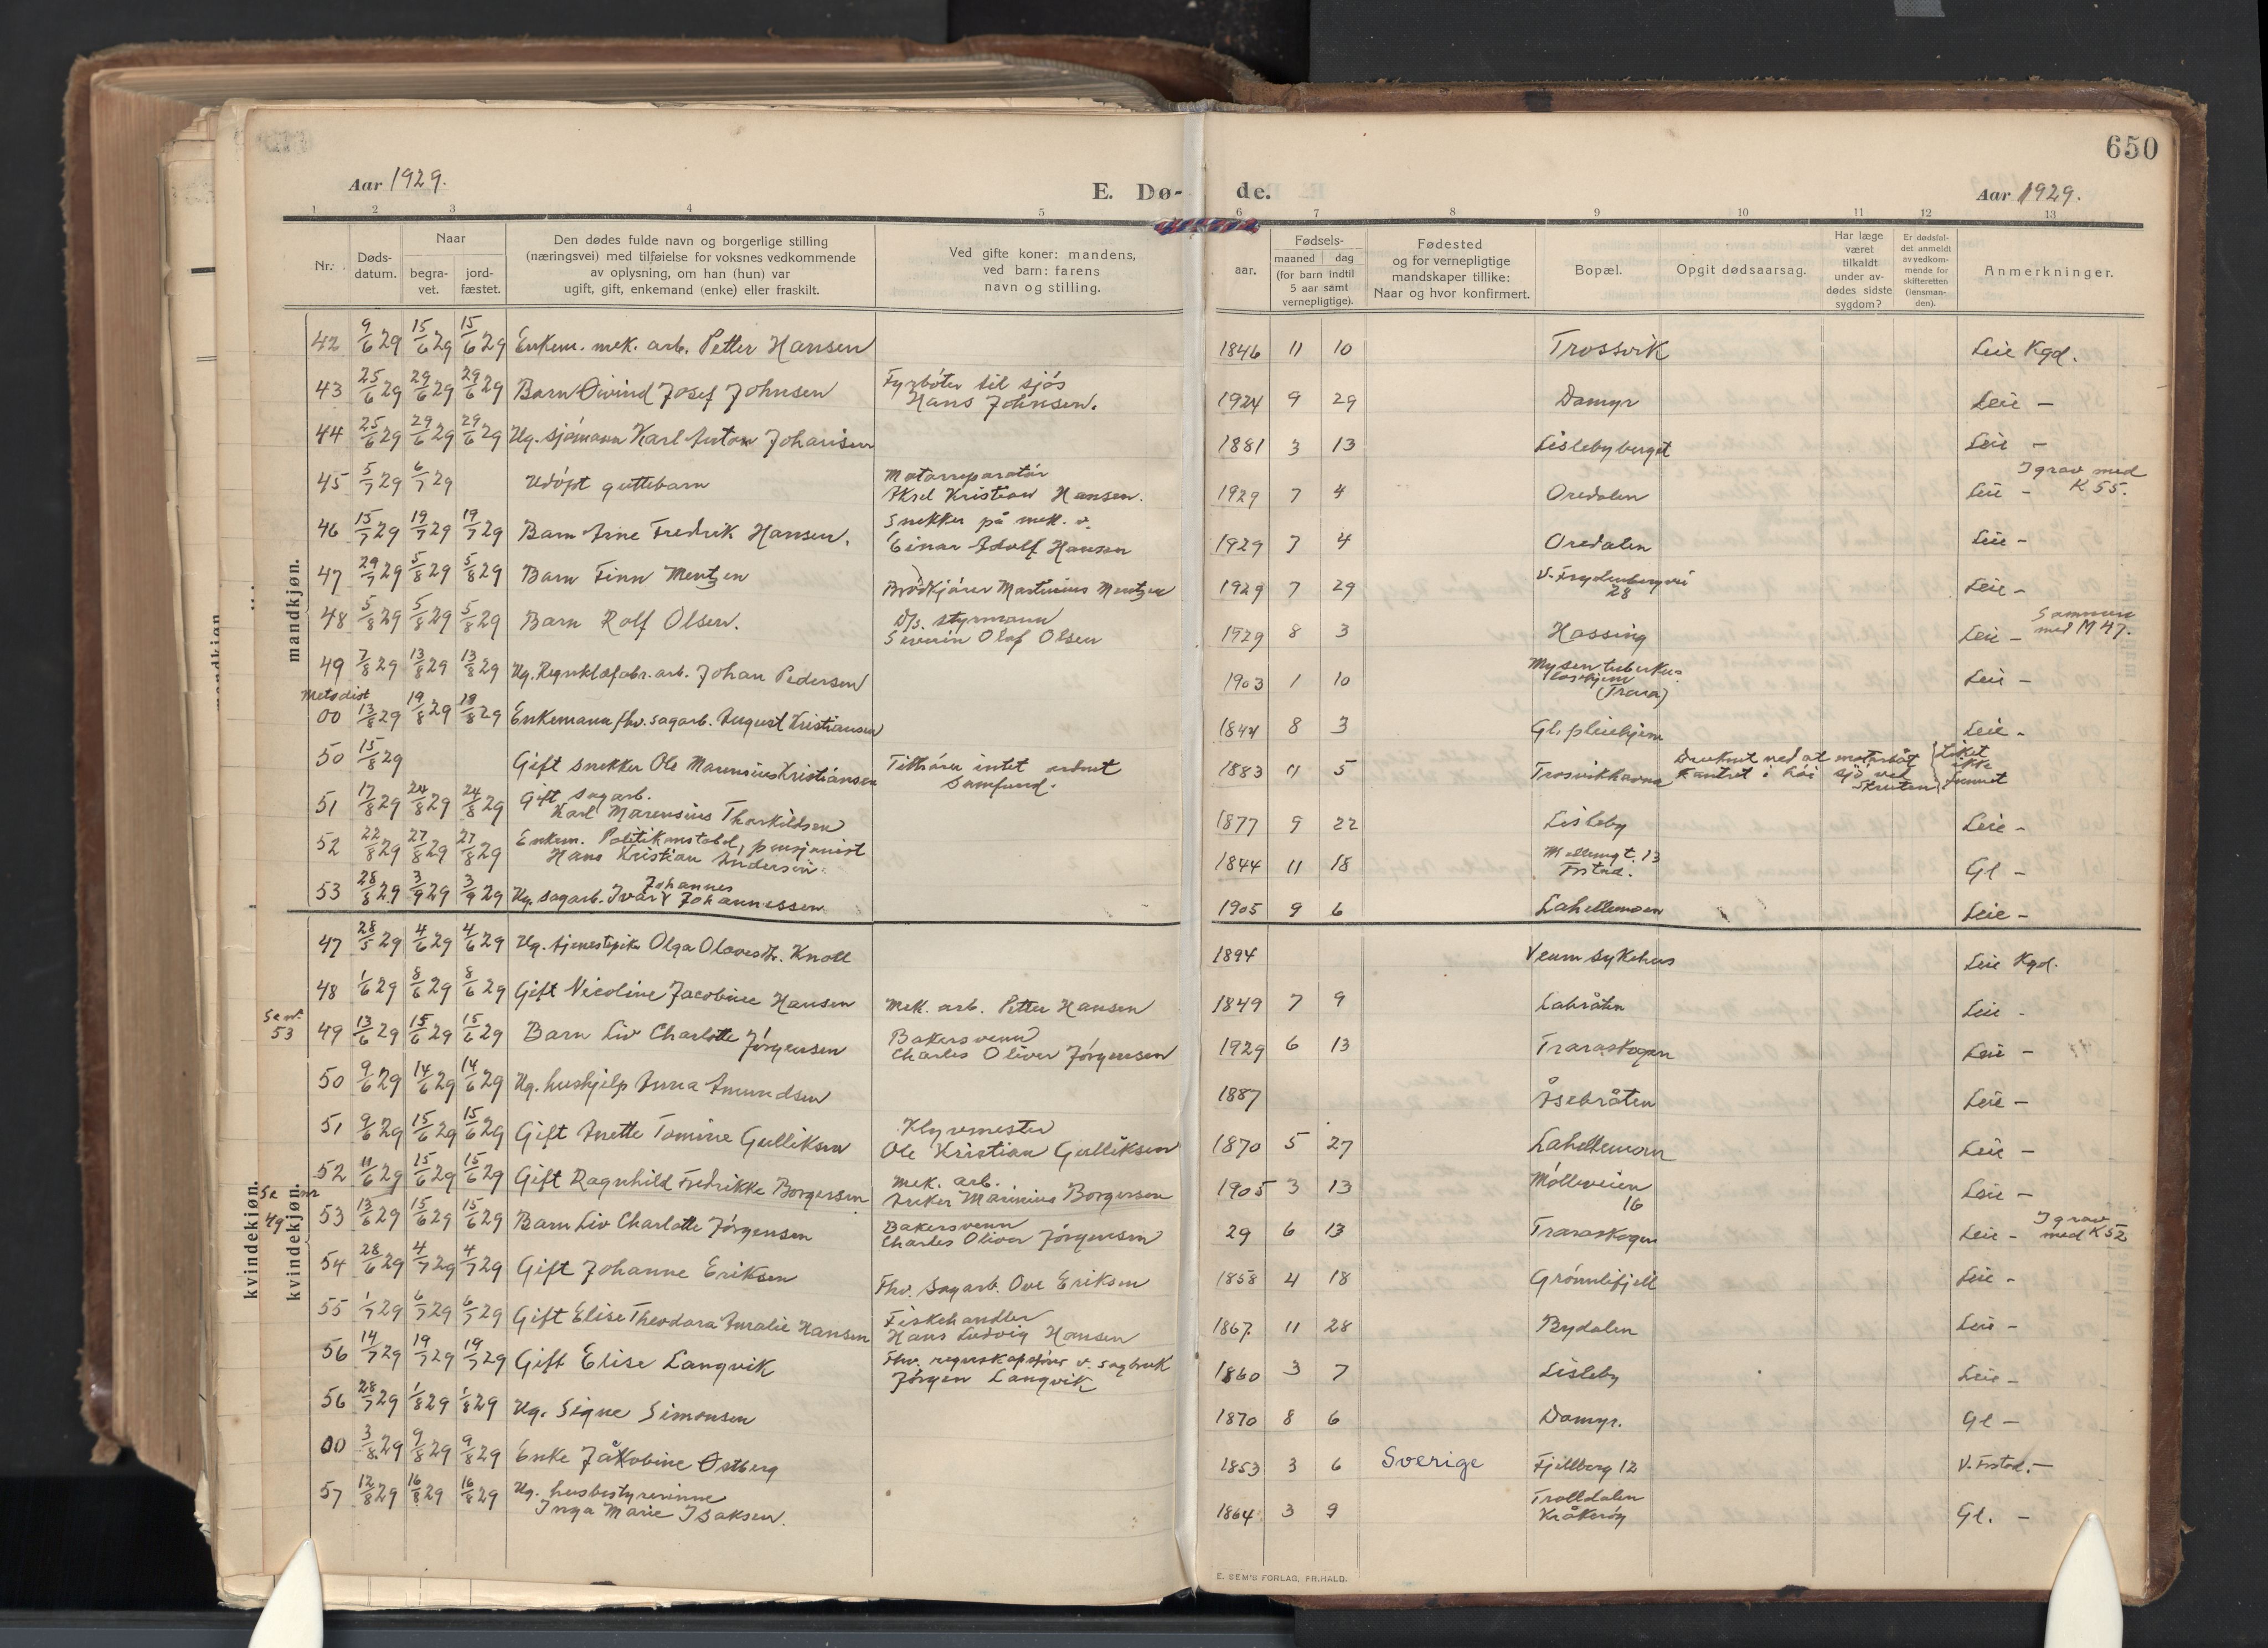 650
Aar 1929.
E. Dø-
de.
Aar 1929.
1 2 3 4 5 6 7 8 9 10 11 12 13
Nr.
Døds-
datum.
Naar
begra-
vet.
jord-
fæstet.
Den dødes fulde navn og borgerlige stilling
(næringsvei) med tilføielse for voksnes vedkommende
av oplysning, om han (hun) var
ugift, gift, enkemand (enke) eller fraskilt.
Ved gifte koner: mandens,
ved barn: farens
navn og stilling.
aar.
Fødsels-
maaned dag
(for barn indtil
5 aar samt
vernepligtige).
Fødested
og for vernepligtige
mandskaper tillike:
Naar og hvor konfirmert.
Bopæl.
Opgit dødsaarsag.
Har læge
været
tilkaldt
under av-
dødes sidste
sygdom?
Er dødsfal-
det anmeldt
av vedkom-
mende for
skifteretten
(lensman-
den).
Anmerkninger.
mandkjøn.
42 9/6 29 15/6 29 15/6 29 Enkem. mek. arb. Petter Hansen 1846 11 10 Trossvik Leie Kgd.
43 25/6 29 29/6 29 29/6 29 Barn Øivind Josef Johnsen Fyrbøter til sjøs
Hans Johnsen. 1924 9 29 Damyr Leie —
44 25/6 29 29/6 29 29/6 29 Ug. sjømann Karl Anton Johansen 1881 3 13 Lislebyberget Leie —
45 5/7 29 6/7 29 Udøpt guttebarn Motorreparatør
Aksel Kristian Hansen. 1929 7 4 Oredalen Leie - I grav med
K 55.
46 15/7 29 19/7 29 19/7 29 Barn Arne Fredrik Hansen. Snekker på mek. v.
Einar Adolf Hansen 1929 7 4 Oredalen Leie -
47 29/7 29 5/8 29 5/8 29 Barn Finn Mentzen Brødkjører Martinius Mentzen 1929 7 29 V. Frydenbergvei
28 Leie -
48 5/8 29 5/8 29 5/8 29 Barn Rolf Olsen. D/s. styrmann
Severin Olaf Olsen 1929 8 3 Hassing Leie - Sammen
med M 47.
49 7/8 29 13/8 29 13/8 29 Ug. Regnklæfabr. arb. Johan Pedersen 1903 1 10 Mysen tuberku-
losehjem
(Trara) Leie -
Metodist
00 13/8 29 19/8 29 19/8 29 Enkemann fhv. sagarb. August Kristiansen 1844 8 3 Gl. pleiehjem Leie -
50 15/8 29 Gift snekker Ole Marensius Kristiansen Tilhører intet ordnet
Samfund. 1883 11 5 Trosvikhavna Druknet ved at motorbåt
kantret i høi sjø ved
Struten Liket
ikke
funnet
51 17/8 29 24/8 29 24/8 29 Gift sagarb.
Karl Marensius Thorkildsen 1877 9 22 Lisleby Leie -
52 22/8 29 27/8 29 27/8 29 Enkem. Politikonstabel, pensjonist
Hans Kristian Andersen. 1844 11 18 13
Frstad. Gl -
53 28/8 29 3/9 29 3/9 29 Ug. sagarb. Ivar Johannes Johannessen 1905 9 6 Lahellemoen Leie -
kvindekjøn.
kvindekjøn.
47 28/5 29 4/6 29 4/6 29 Ug. tjenestepike Olga Olavesdt. Knoll 1894 Veum sykehus Leie Kgd.
48 1/6 29 8/6 29 8/6 29 Gift Nicoline Jacobine Hansen Mek. arb. Petter Hansen 1849 7 9 Labråten Leie -
Se nr.
53 49 13/6 29 15/6 29 15/6 29 Barn Liv Charlotte Jørgensen Bakersvenn
Charles Oliver Jørgensen 1929 6 13 Traraskogen Leie -
50 9/6 29 14/6 29 14/6 29 Ug. hushjelp Anna Amundsen 1887 Åsebråten Leie -
51 9/6 29 15/6 29 15/6 29 Gift Anette Tomine Gulliksen Hyremester
Ole Kristian Gulliksen 1870 5 27 Lahellemoen Leie -
52 11/6 29 15/6 29 15/6 29 Gift Ragnhild Fredrikke Borgersen Mek. arb.
Anker Marinius Borgersen 1905 3 13 Mølleveien
16 Leie -
Se nr
49 53 13/6 29 15/6 29 15/6 29 Barn Liv Charlotte Jørgensen Bakersvenn
Charles Oliver Jørgensen 29 6 13 Traraskogen Leie - I grav
med K 52
54 28/6 29 4/7 29 4/7 29 Gift Johanne Eriksen Fhv. Sagarb. Ove Eriksen 1858 4 18 Grønnlifjell Leie -
55 1/7 29 6/7 29 6/7 29 Gift Elise Theodora Amalie Hansen Fiskehandler
Hans Ludvig Hansen 1867 11 28 Bydalen Leie -
56 14/7 29 19/7 29 19/7 29 Gift Elise Langvik Fhv. regnskapsfører v. sagbruk
Jørgen Langvik 1860 3 7 Lisleby Leie -
56 28/7 29 1/8 29 1/8 29 Ug. Signe Simonsen 1870 8 6 Damyr. Gl -
00 3/8 29 9/8 29 9/8 29 Enke Jåkobine Østberg 1853 3 6 Sverige Fjellberg 12 V. Frstad. -
57 12/8 29 16/8 29 16/8 29 Ug. husbestyrerinne
Inga Marie Isaksen. 1864 3 9 Trolldalen
Kråkerøy Gl. -
E. SEM'S FORLAG, FR:HALD.